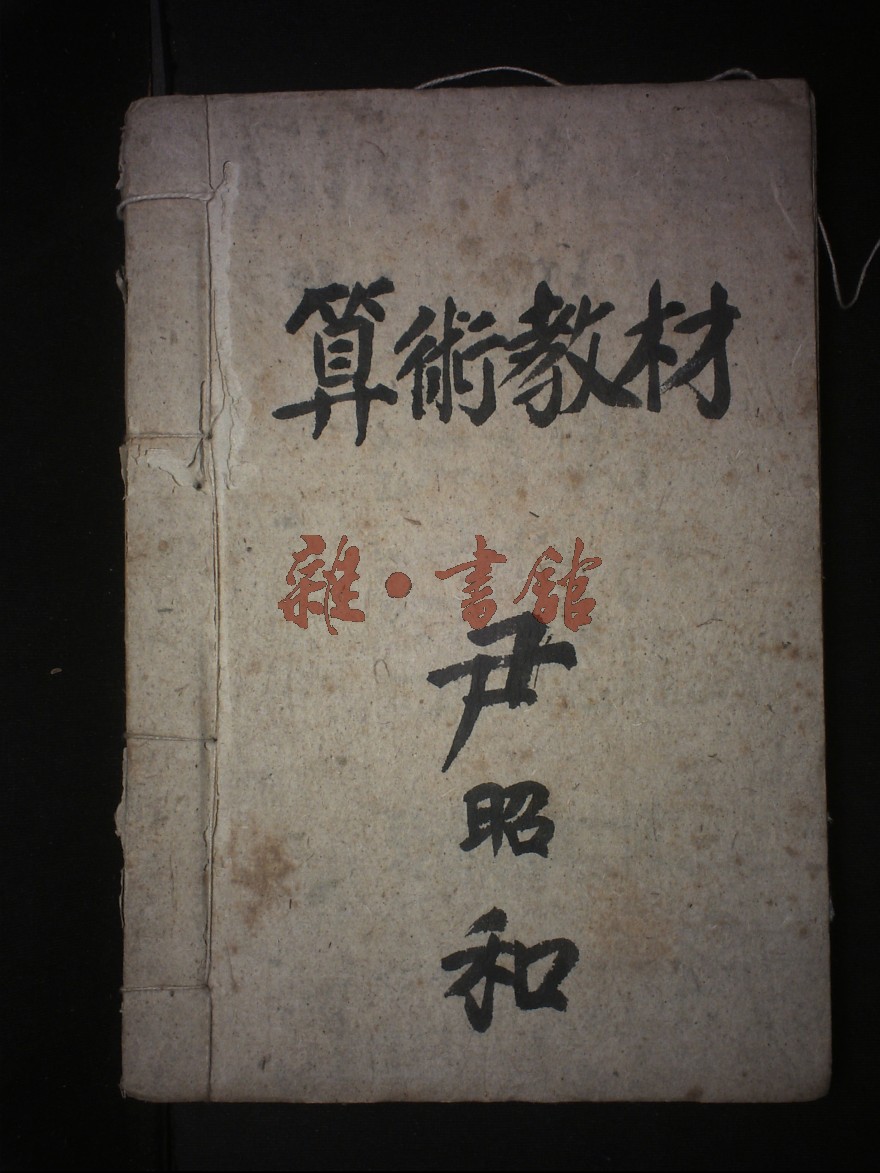 算術教材
雜·書館
尹
昭
和